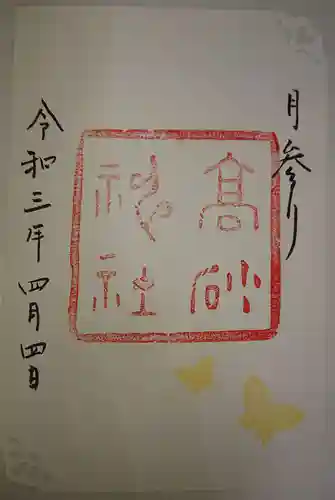 月参り
髙砂
神社
令和三年四月四日